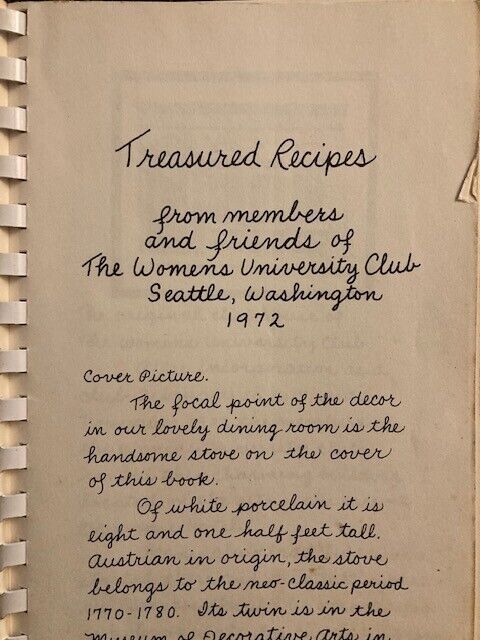 Treasured Recipes
from members
and friends of
The Womens University Club
Seattle, Washington
1972
Cover Picture.
The focal point of the decor
in our lovely dining room is the
handsome stove on the cover
of this book.
Of white porcelain it is
eight and one half feet tall.
Austrian in origin, the stove
belongs to the neo-classic period
1770-1780. Its twin is in the
Museum of Decorative Arts in